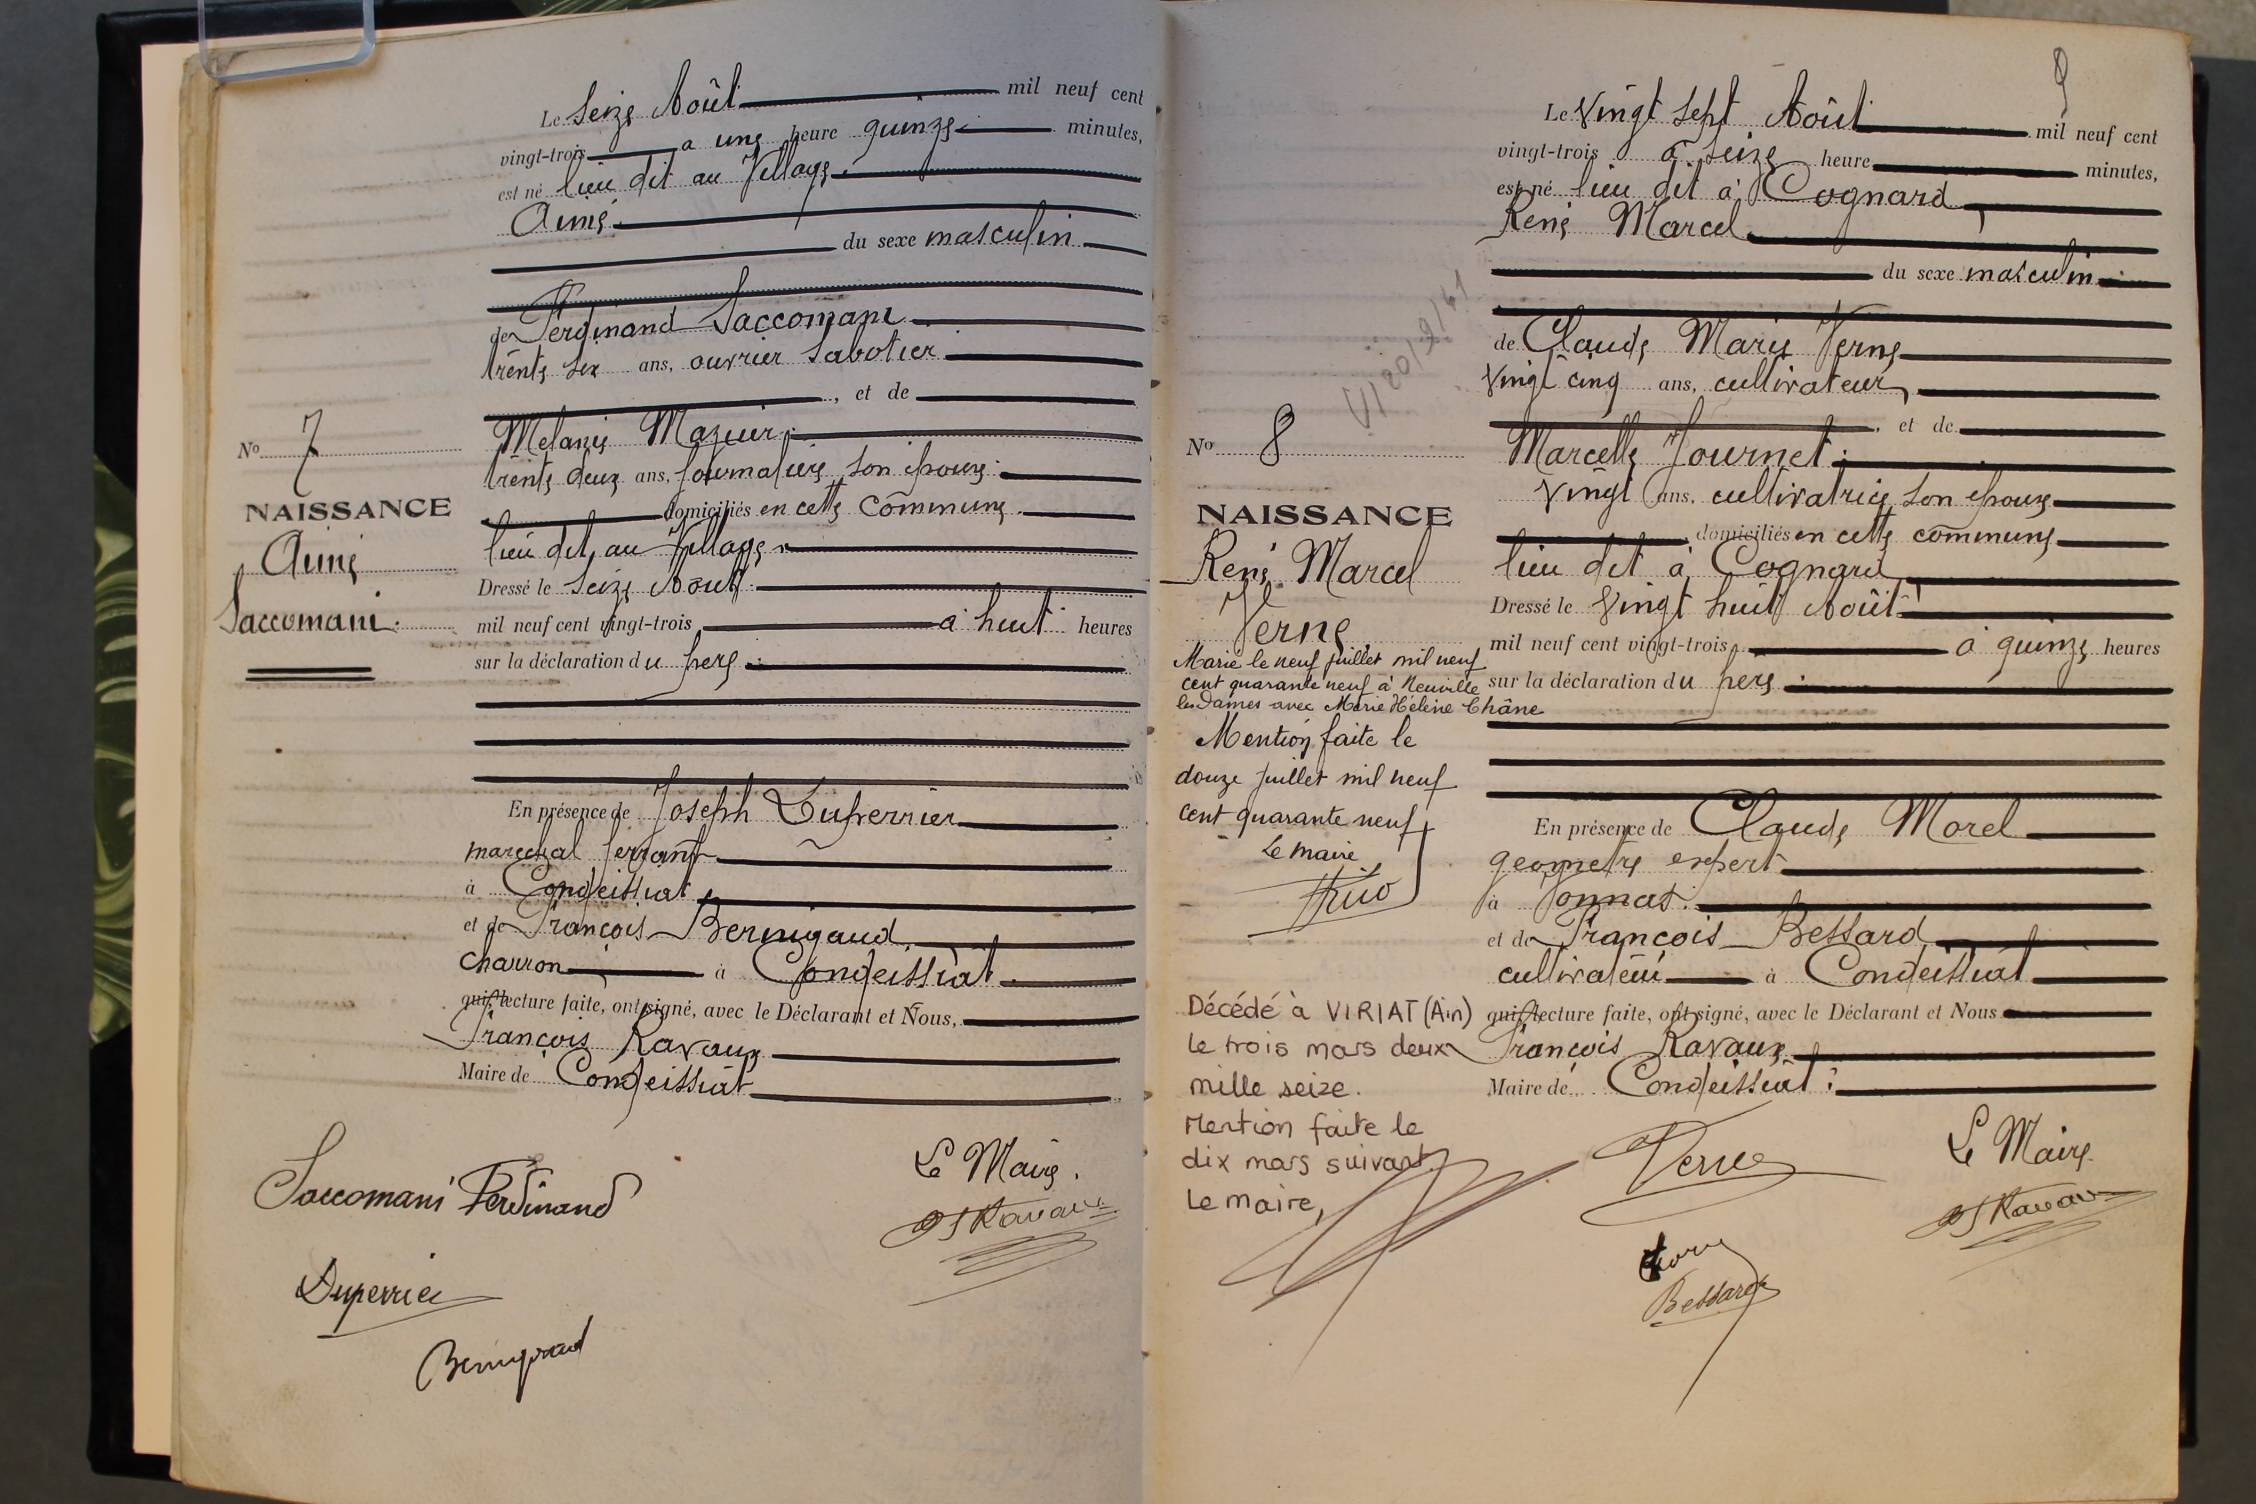 Le seize Août mil neuf cent
vingt-trois à une heure quinze minutes,
est né lieu dit au Village
Aimé
du sexe masculin
de Ferdinand Saccomani
trente six ans, ouvrier sabotier
, et de
Mélanie Mazuir
trente deux ans, journalière son épouse
domiciliés en cette commune
lieu dit au Village
Dressé le seize Août
mil neuf cent vingt-trois à huit heures
sur la déclaration du père
En présence de Joseph Duperrier
maréchal ferrant
à Condeissiat
et de François Bernigaud
charron à Condeissiat
qui, lecture faite, ont signé, avec le Déclarant et Nous,
François Ravaux
Maire de Condeissiat
No 7
NAISSANCE
Aimé
Saccomani
Saccomani Ferdinand
Le Maire.
Duperrier
Bernigaud
9
Le vingt sept Août mil neuf cent
vingt-trois à seize heure minutes,
est né lieu dit à Cognard
René Marcel
du sexe masculin
de Claude Marie Verne
vingt cinq ans, cultivateur
, et de
Marcelle Journet
vingt ans, cultivatrice son épouse
domiciliés en cette commune
lieu dit à Cognard
Dressé le vingt huit Août
mil neuf cent vingt-trois à quinze heures
sur la déclaration du père
En présence de Claude Morel
géomètre expert
à Vonnas
et de François Bessard
cultivateur à Condeissiat
qui, lecture faite, ont signé, avec le Déclarant et Nous
François Ravaux
Maire de Condeissiat
No 8
NAISSANCE
René Marcel
Verne
Marié le neuf juillet mil neuf
cent quarante neuf à Neuville
les Dames avec Marie Hélène Châne
Mention faite le
douze juillet mil neuf
cent quarante neuf
Le maire
Décédé à VIRIAT (Ain)
le trois mars deux
mille seize.
Mention faite le
dix mars suivant
Le maire,
Verne
Le Maire
Bessard